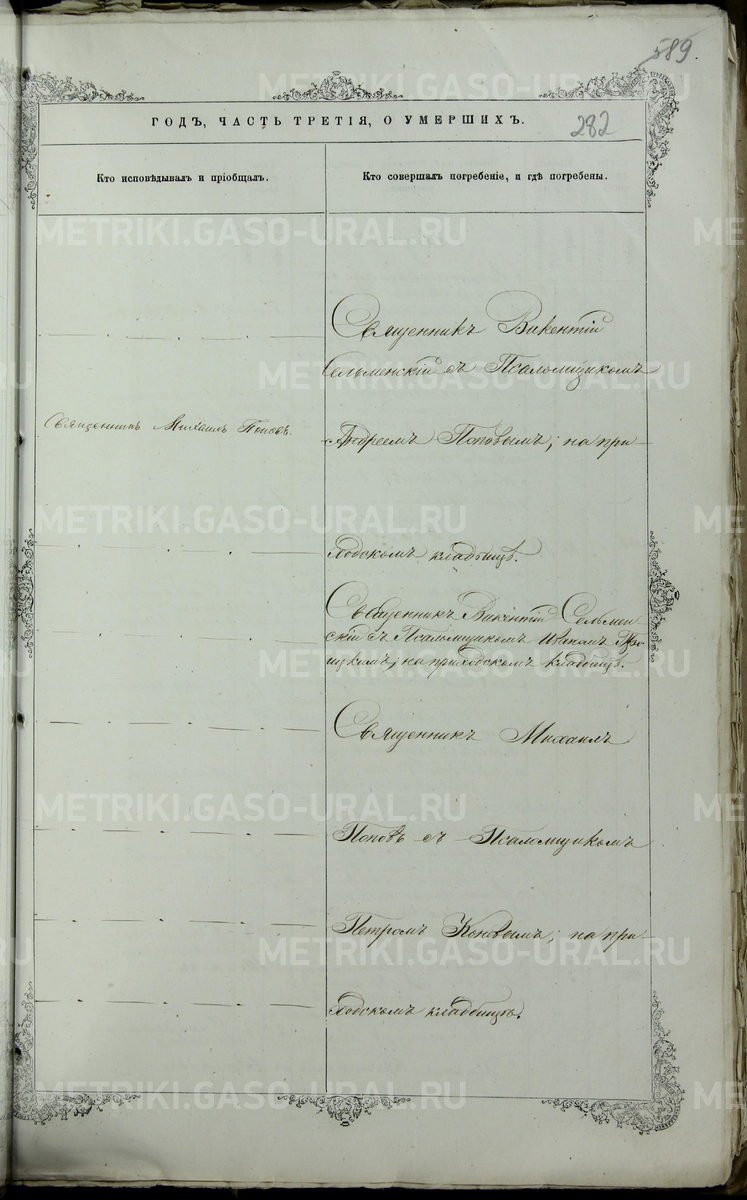 589
ГОДЪ, ЧАСТЬ ТРЕТІЯ, О УМЕРШИХЪ.
282
Кто исповѣдывалъ и пріобщалъ.
Кто совершалъ погребеніе, и гдѣ погребены.
METRIKI.GASO-URAL.RU
Священникъ Викентій
Сельменскій съ Псаломщикомъ
Священникъ Михаилъ Поповъ.
Андреемъ Поповымъ; на при-
ходскомъ кладбищѣ.
Священникъ Викентій Сельмен
скій съ Псаломщикомъ Иваномъ
на приходскомъ кладбищѣ.
Священникъ Михаилъ
Поповъ съ Псаломщикомъ
Петромъ Коновымъ; на при-
ходскомъ кладбищѣ.